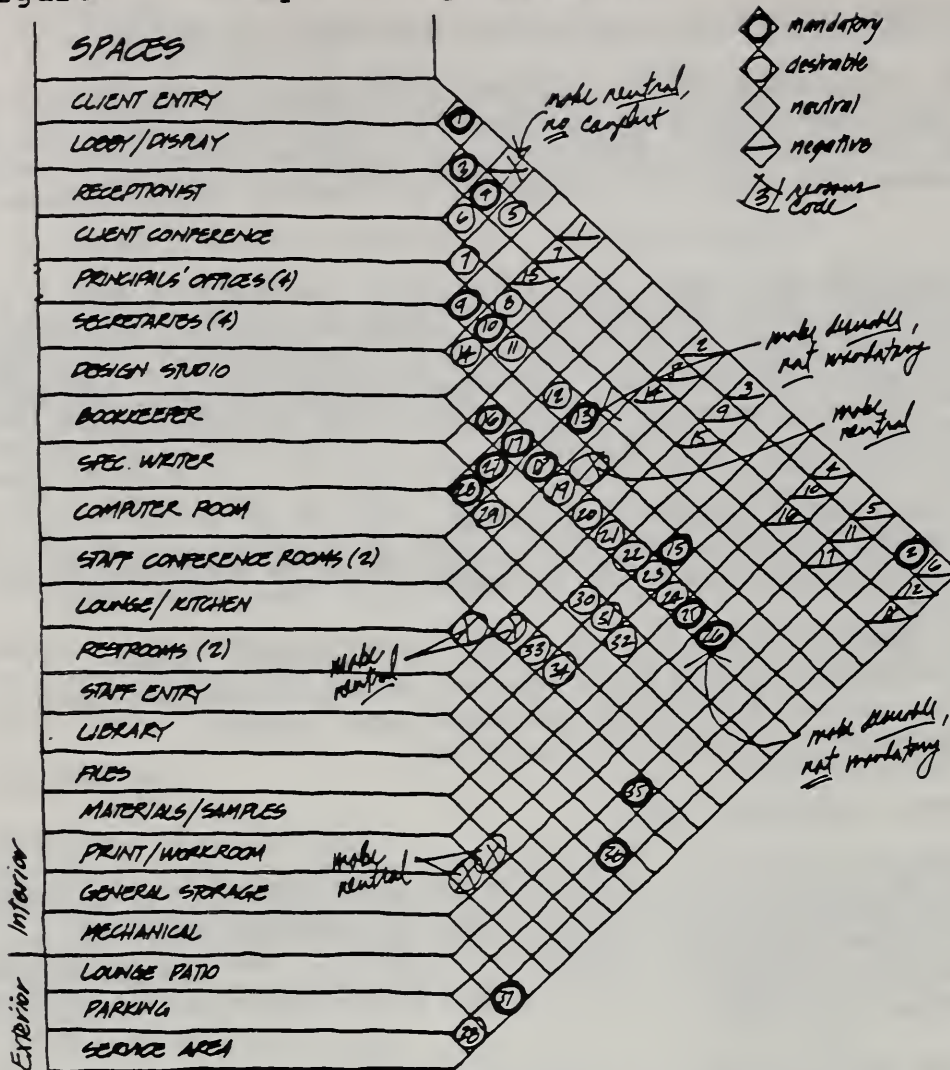 SPACES
CLIENT ENTRY
LOBBY/DISPLAY
RECEPTIONIST
CLIENT CONFERENCE
PRINCIPALS' OFFICES (4)
SECRETARIES (4)
DESIGN STUDIO
BOOKKEEPER
SPEC. WRITER
COMPUTER ROOM
STAFF CONFERENCE ROOMS (2)
LOUNGE/KITCHEN
RESTROOMS (2)
STAFF ENTRY
LIBRARY
FILES
MATERIALS/SAMPLES
PRINT/WORKROOM
GENERAL STORAGE
MECHANICAL
LOUNGE PATIO
PARKING
SERVICE AREA
Interior
Exterior
mandatory
desirable
neutral
negative
3 reasons
code
make neutral,
no conflict
make desirable,
not mandatory
make
neutral
make desirable,
not mandatory
make
neutral
make
neutral
1
3
4
5
6
1
7
7
13
9
8
10
14
11
2
8
14
3
9
15
12
13
16
17
27
19
28
29
20
21
22
15
23
24
25
26
4
10
16
5
11
17
2
6
12
30
31
32
33
34
35
36
37
38